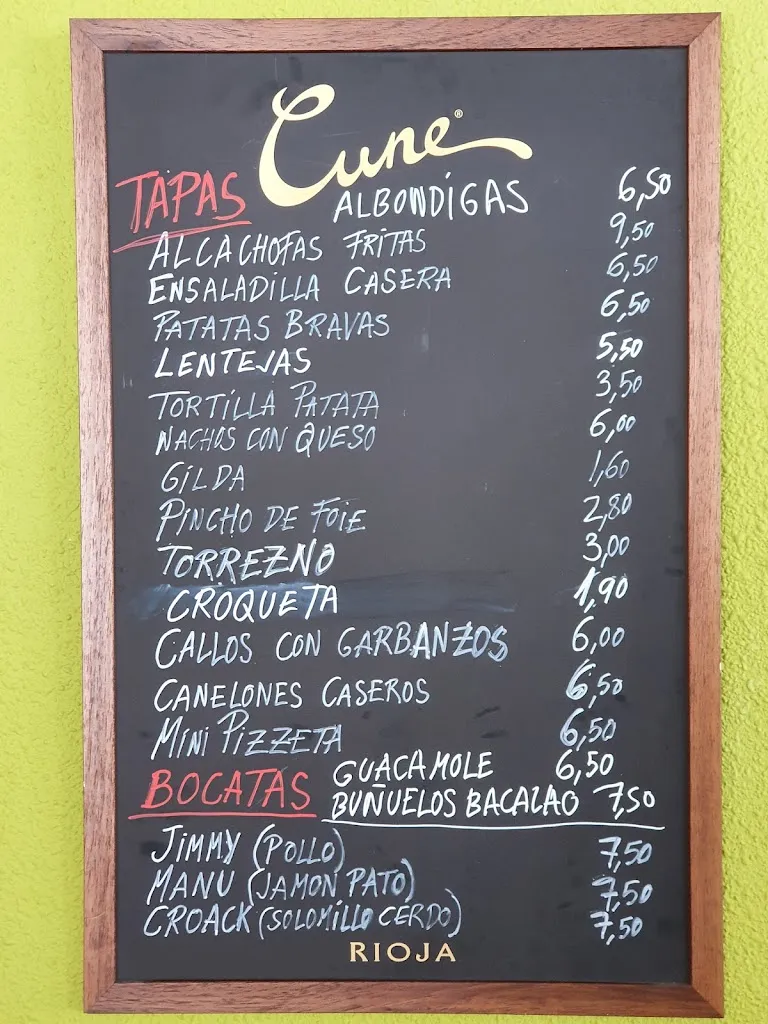 Cune®
TAPAS ALBONDIGAS 6,50
ALCACHOFAS FRITAS 9,50
ENSALADILLA CASERA 6,50
PATATAS BRAVAS 6,50
LENTEJAS 5,50
TORTILLA PATATA 3,50
NACHOS CON QUESO 6,00
GILDA 1,60
PINCHO DE FOIE 2,80
TORREZNO 3,00
CROQUETA 1,90
CALLOS CON GARBANZOS 6,00
CANELONES CASEROS 6,50
MINI PIZZETA 6,50
GUACAMOLE 6,50
BUÑUELOS BACALAO 7,50
BOCATAS
JIMMY (POLLO) 7,50
MANU (JAMON PATO) 7,50
CROACK (SOLOMILLO CERDO) 7,50
RIOJA